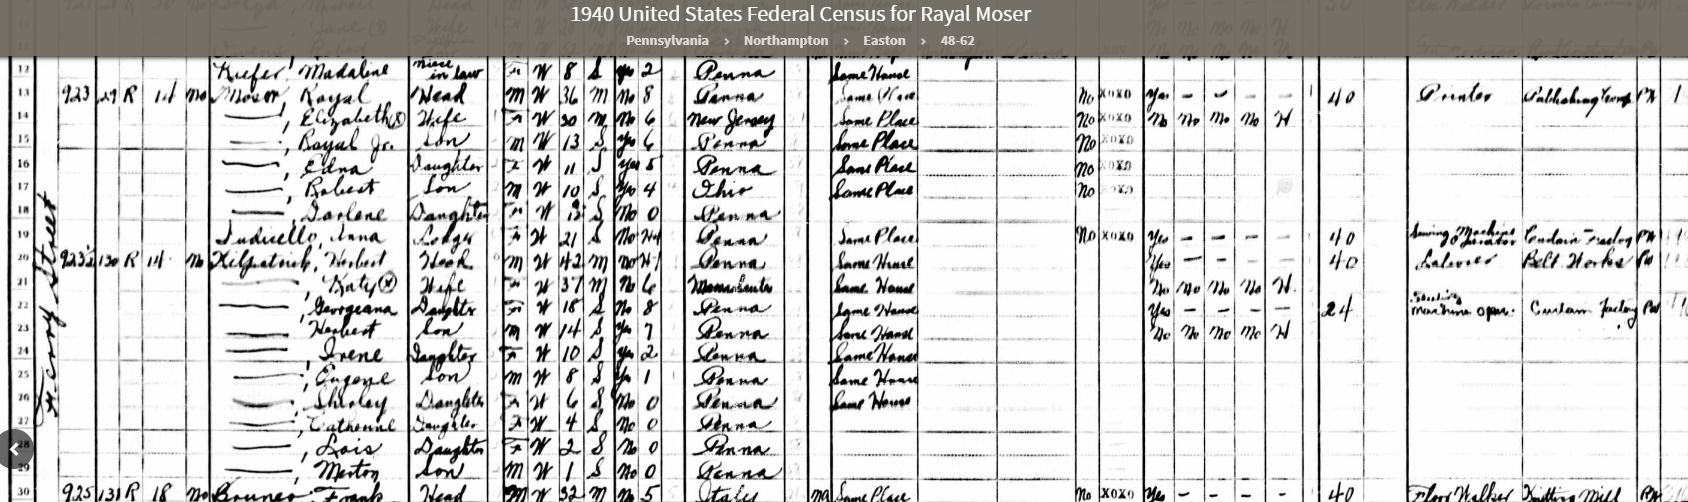 1940 United States Federal Census for Rayal Moser
Pennsylvania › Northampton › Easton › 48-62
12 Kiefer, Madaline niece in law F W 8 S yes 2 Penna Same House
13 923 129 R 14 No Moser, Royal Head M W 36 M No 8 Penna Same Place No XOXO Yes – – – 40 Printer PW
14 ——, Elizabeth Wife F W 30 M No 6 New Jersey Same Place No XOXO No No No No H
15 ——, Royal Jr. Son M W 13 S yes 6 Penna Same Place No XOXO
16 ——, Edna Daughter F W 11 S yes 5 Penna Same Place No XOXO
17 ——, Robert Son M W 10 S Yes 4 Ohio Same Place No XOXO
18 ——, Darlene Daughter F W S No 0 Penna
19 Anna Lodger F W 21 S No H4 Penna Same Place No XOXO Yes – – – 40 Sewing Machine Operator Curtain Factory PW
20 130 R 14 No Kilpatrick, Herbert Head M W 42 M no H1 Penna Same House Yes – – – 40 Laborer Belt Works PW
21 ——, Katy Wife F W 37 M No 6 Same House No No No No H
22 ——, Georgeana Daughter F W 18 S No 8 Penna Same House Yes – – – 24 Machine oper. Curtain factory PW
23 ——, Herbert Son M W 14 S Yes 7 Penna Same House No No No No H
24 ——, Irene Daughter F W 10 S Yes 2 Penna Same House
25 ——, Eugene Son M W 8 S Yes 1 Penna Same House
26 ——, Shirley Daughter F W 6 S No 0 Penna Same House
27 ——, Catherine Daughter F W 4 S No 0 Penna
28 ——, Lois Daughter F W 2 S No 0 Penna
29 ——, Merton Son M W 1 S No 0 Penna
30 925 131 R 18 No Frank Head M W 32 M No 5 Italy Same Place No XOXO Yes – – – 40 Floor Walker Knitting Mill PW
Street